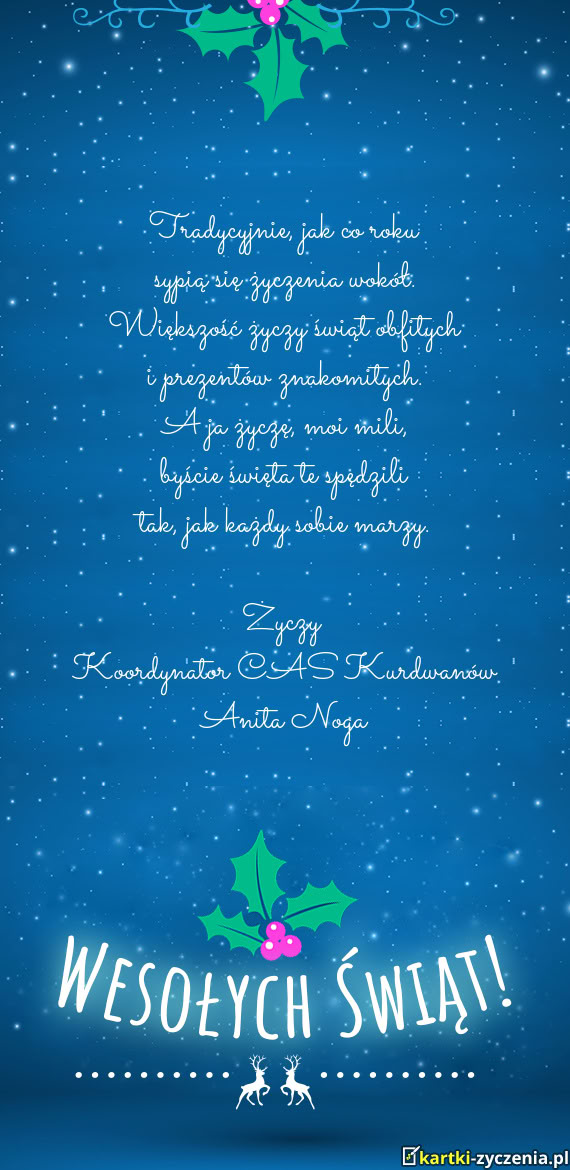 Tradycyjnie, jak co roku
sypią się życzenia wokół.
Większość życzy świąt obfitych
i prezentów znakomitych.
A ja życzę, moi mili,
byście święta te spędzili
tak, jak każdy sobie marzy.
Zyczy
Koordynator CAS Kurdwanów
Anita Noga
Wesołych Świąt!
kartki-zyczenia.pl